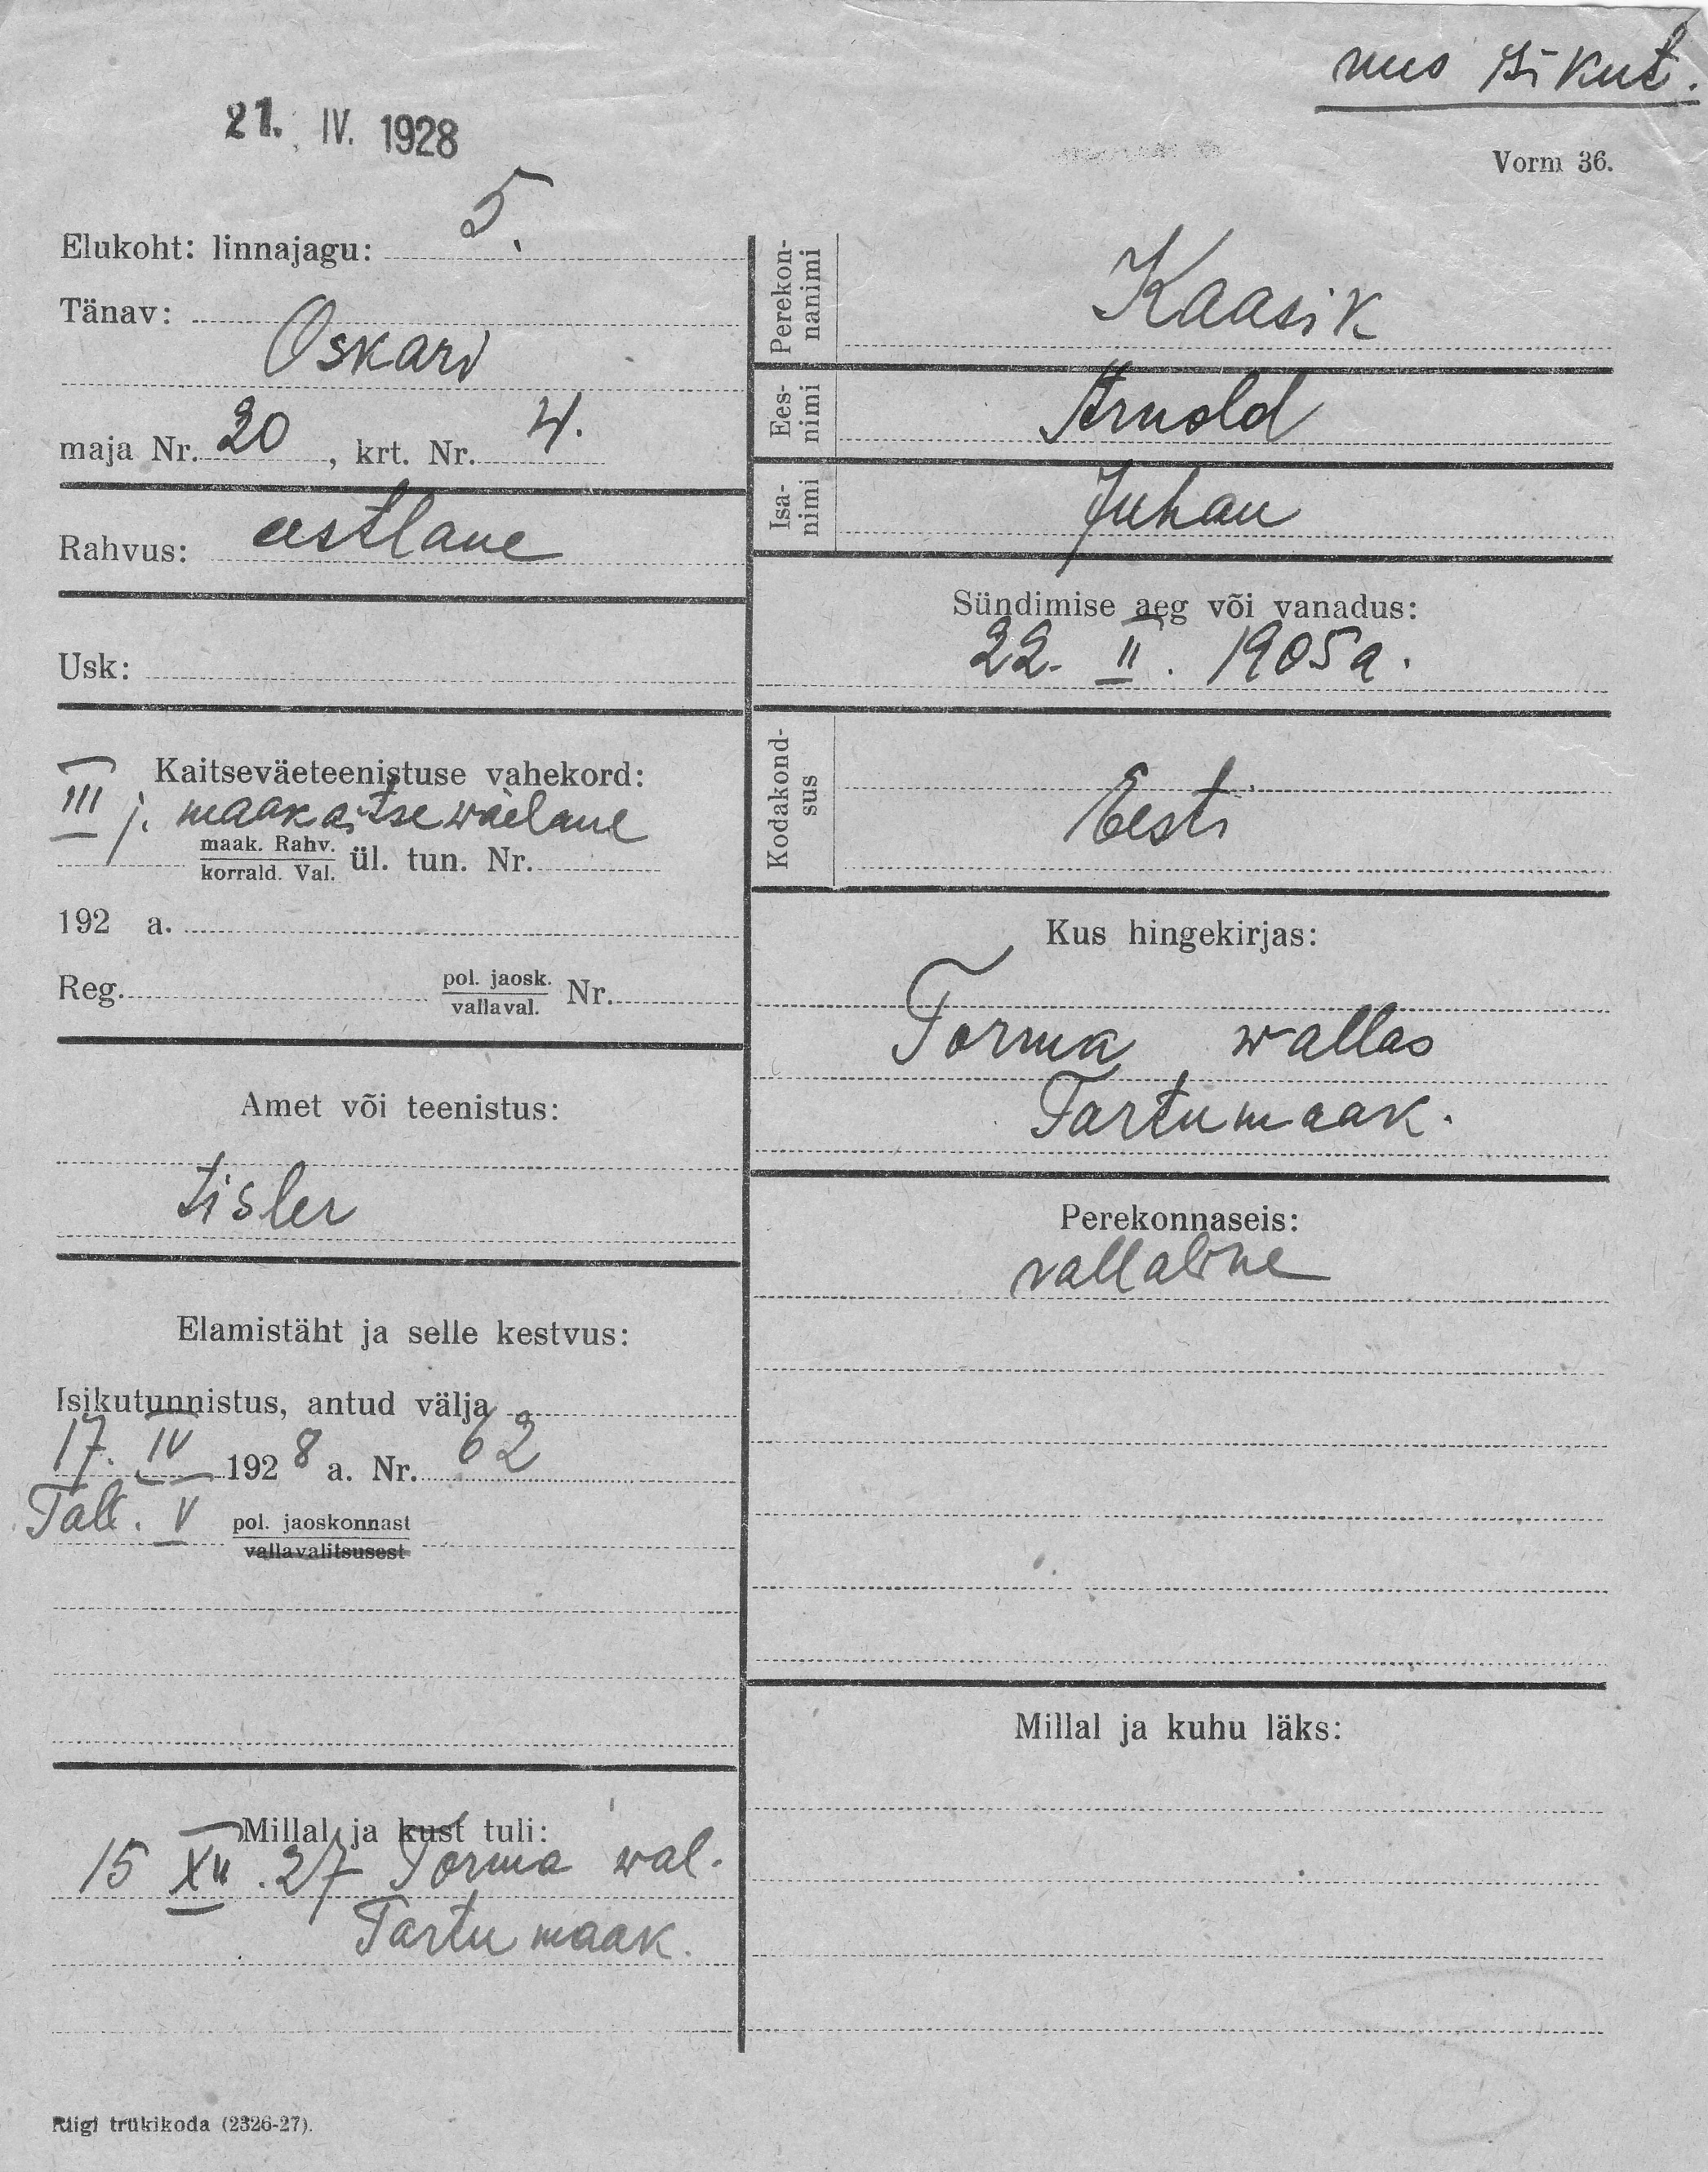 uus isikut.
21. IV. 1928
Vorm 36.
Elukoht: linnajagu: 5.
Tänav:
Oskari
maja Nr. 20, krt. Nr. 4.
Rahvus: eestlane
Usk:
Kaitseväeteenistuse vahekord:
III j. maakaitsewäelane
maak. Rahv.
korrald. Val. ül. tun. Nr.
192 a.
Reg. pol. jaosk.
vallaval. Nr.
Amet või teenistus:
tisler
Elamistäht ja selle kestvus:
Isikutunnistus, antud välja
17. IV 1928 a. Nr. 62
Tall. V pol. jaoskonnast
vallavalitsusest
Millal ja kust tuli:
15 XII. 27 Torma wal.
Tartu maak.
Perekon-
nanimi
Kaasik
Ees-
nimi
Arnold
Isa-
nimi
Juhan
Sündimise aeg või vanadus:
22. II. 1905 a.
Kodakond-
sus
Eesti
Kus hingekirjas:
Torma wallas
Tartumaak.
Perekonnaseis:
vallaline
Millal ja kuhu läks:
Riigi trükikoda (2326-27).